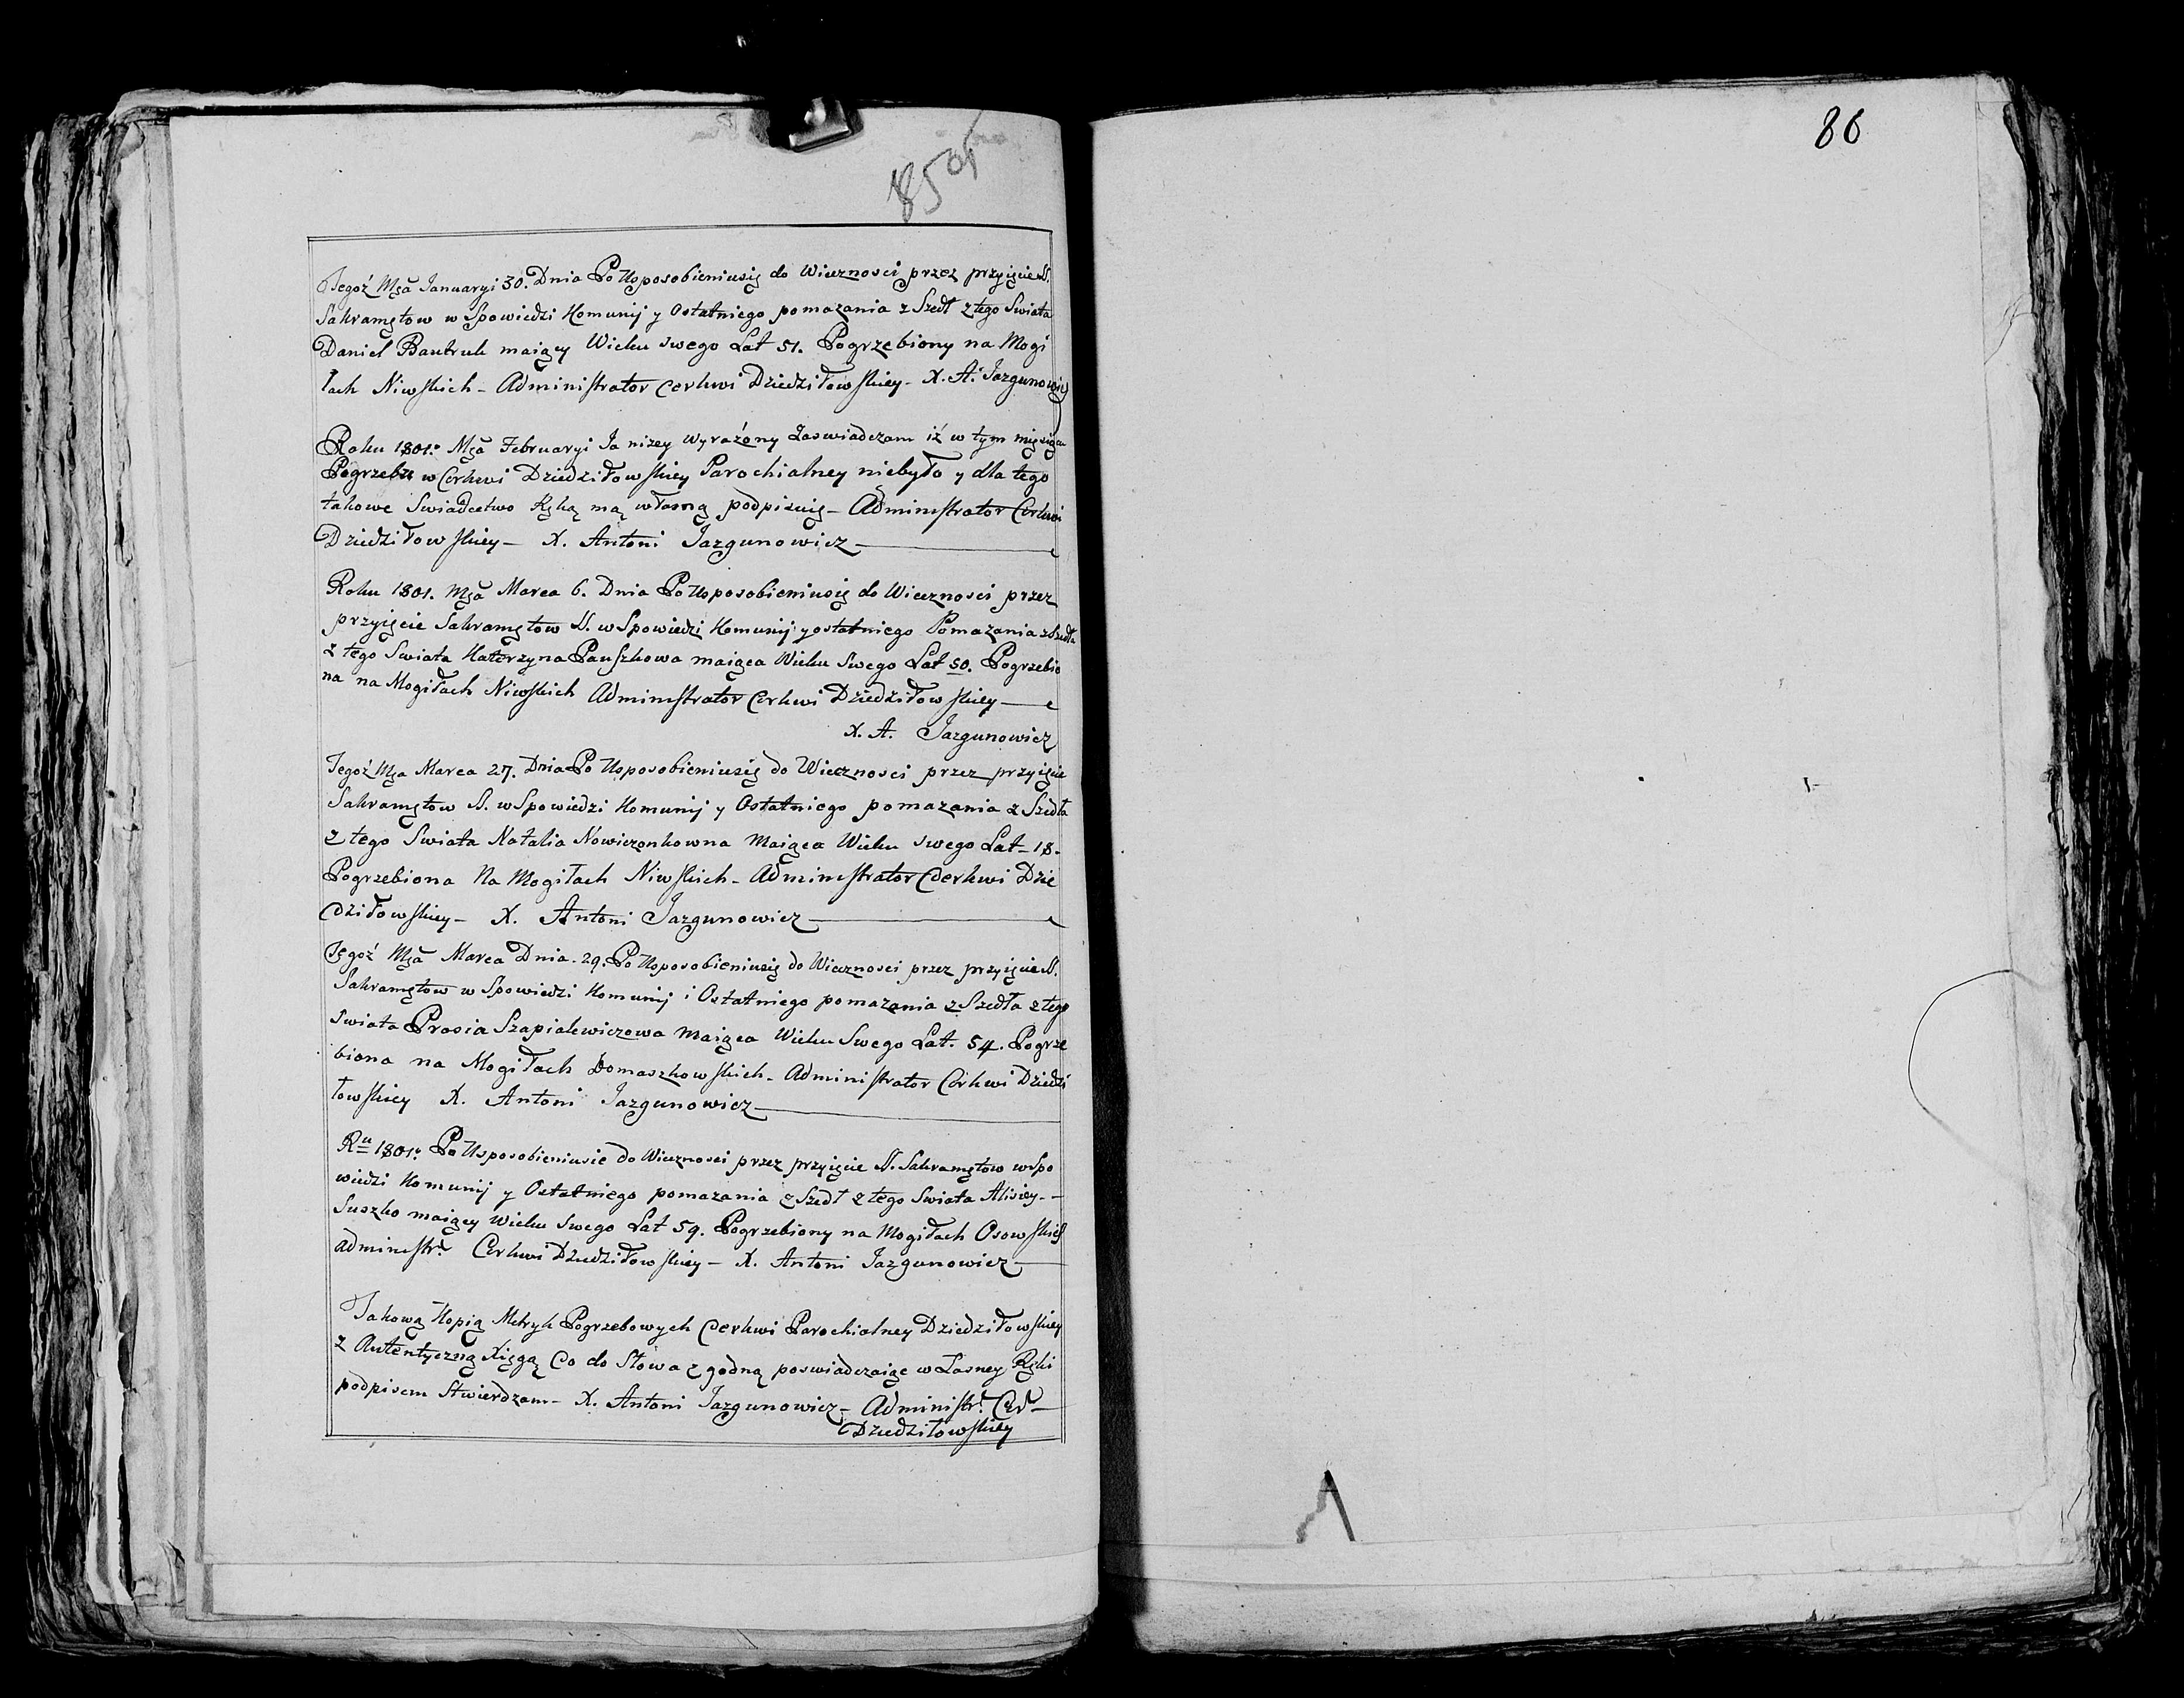 85 об
86
Tegoż Mca Januaryi 30. Dnia Po Usposobieniusię do Wiecznosci przez przyięcie SS.
Sakramętow w Spowiedzi Komunij y Ostatniego pomazania z Szedł z tego Swiata
Daniel Bautruk maiący Wieku swego Lat 51. Pogrzebiony na Mogi
łach Niwskich - Administrator Cerkwi Dziedziłowskiey - X. A. Jazgunowicz
Roku 1801. Mca Februaryi Ja nizey wyrażony Zaswiadczam iż w tym miesiącu
Pogrzebu w Cerkwi Dziedziłowskiey Parochialney niebyło y dla tego
takowe Swiadectwo Ręką mą własną podpisuię - Administrator Cerkwi
Dziedziłowskiey - X. Antoni Jazgunowicz
Roku 1801. Mca Marca 6. Dnia Po Usposobieniusię do Wiecznosci przez
przyięcie Sakramętow SS. w Spowiedzi Komunij y ostatniego Pomazania z Szedła
z tego Swiata Katerzyna Pauszkowa maiąca Wieku Swego Lat 50. Pogrzebio
na na Mogiłach Niwskich Administrator Cerkwi Dziedziłowskiey
X. A. Jazgunowicz
Tegoż Mca Marca 27. Dnia Po Usposobieniusię do Wiecznosci przez przyięcie
Sakramętow SS. w Spowiedzi Komunij y Ostatniego pomazania z Szedła
z tego Swiata Natalia Nowiczonkowna Maiąca Wieku swego Lat - 18 -
Pogrzebiona Na Mogiłach Niwskich - Administrator Cerkwi Dzie
dziłowskiey - X. Antoni Jazgunowicz
Tegoż Mca Marca Dnia. 29. Po Usposobieniusię do Wiecznosci przez przyięcie SS.
Sakramętow w Spowiedzi Komunij i Ostatniego pomazania z Szedła z tego
swiata Prosia Szapialewiczowa Maiąca Wieku Swego Lat. 54. Pogrze
biona na Mogiłach Domaszkowskich - Administrator Cerkwi Dziedzi
łowskiey X. Antoni Jazgunowicz
Ru 1801. Po Usposobieniusie do Wiecznosci przez przyięcie SS. Sakramętow w Spo
wiedzi Komunij y Ostatniego pomazania z Szedł z tego Swiata Alisiey -
Suszko maiący Wieku Swego Lat 59. Pogrzebiony na Mogiłach Osowskich
Administr. Cerkwi Dziedziłowskiey - X. Antoni Jazgunowicz
Takową Kopią Metryk Pogrzebowych Cerkwi Parochialney Dziedziłowskiey
z Autentyczną Xięgą Co do Słowa zgodną poswiadczaiąc własney Ręki
podpisem Stwierdzam - X. Antoni Jazgunowicz - Administr. Cer.
Dziedziłowskiey